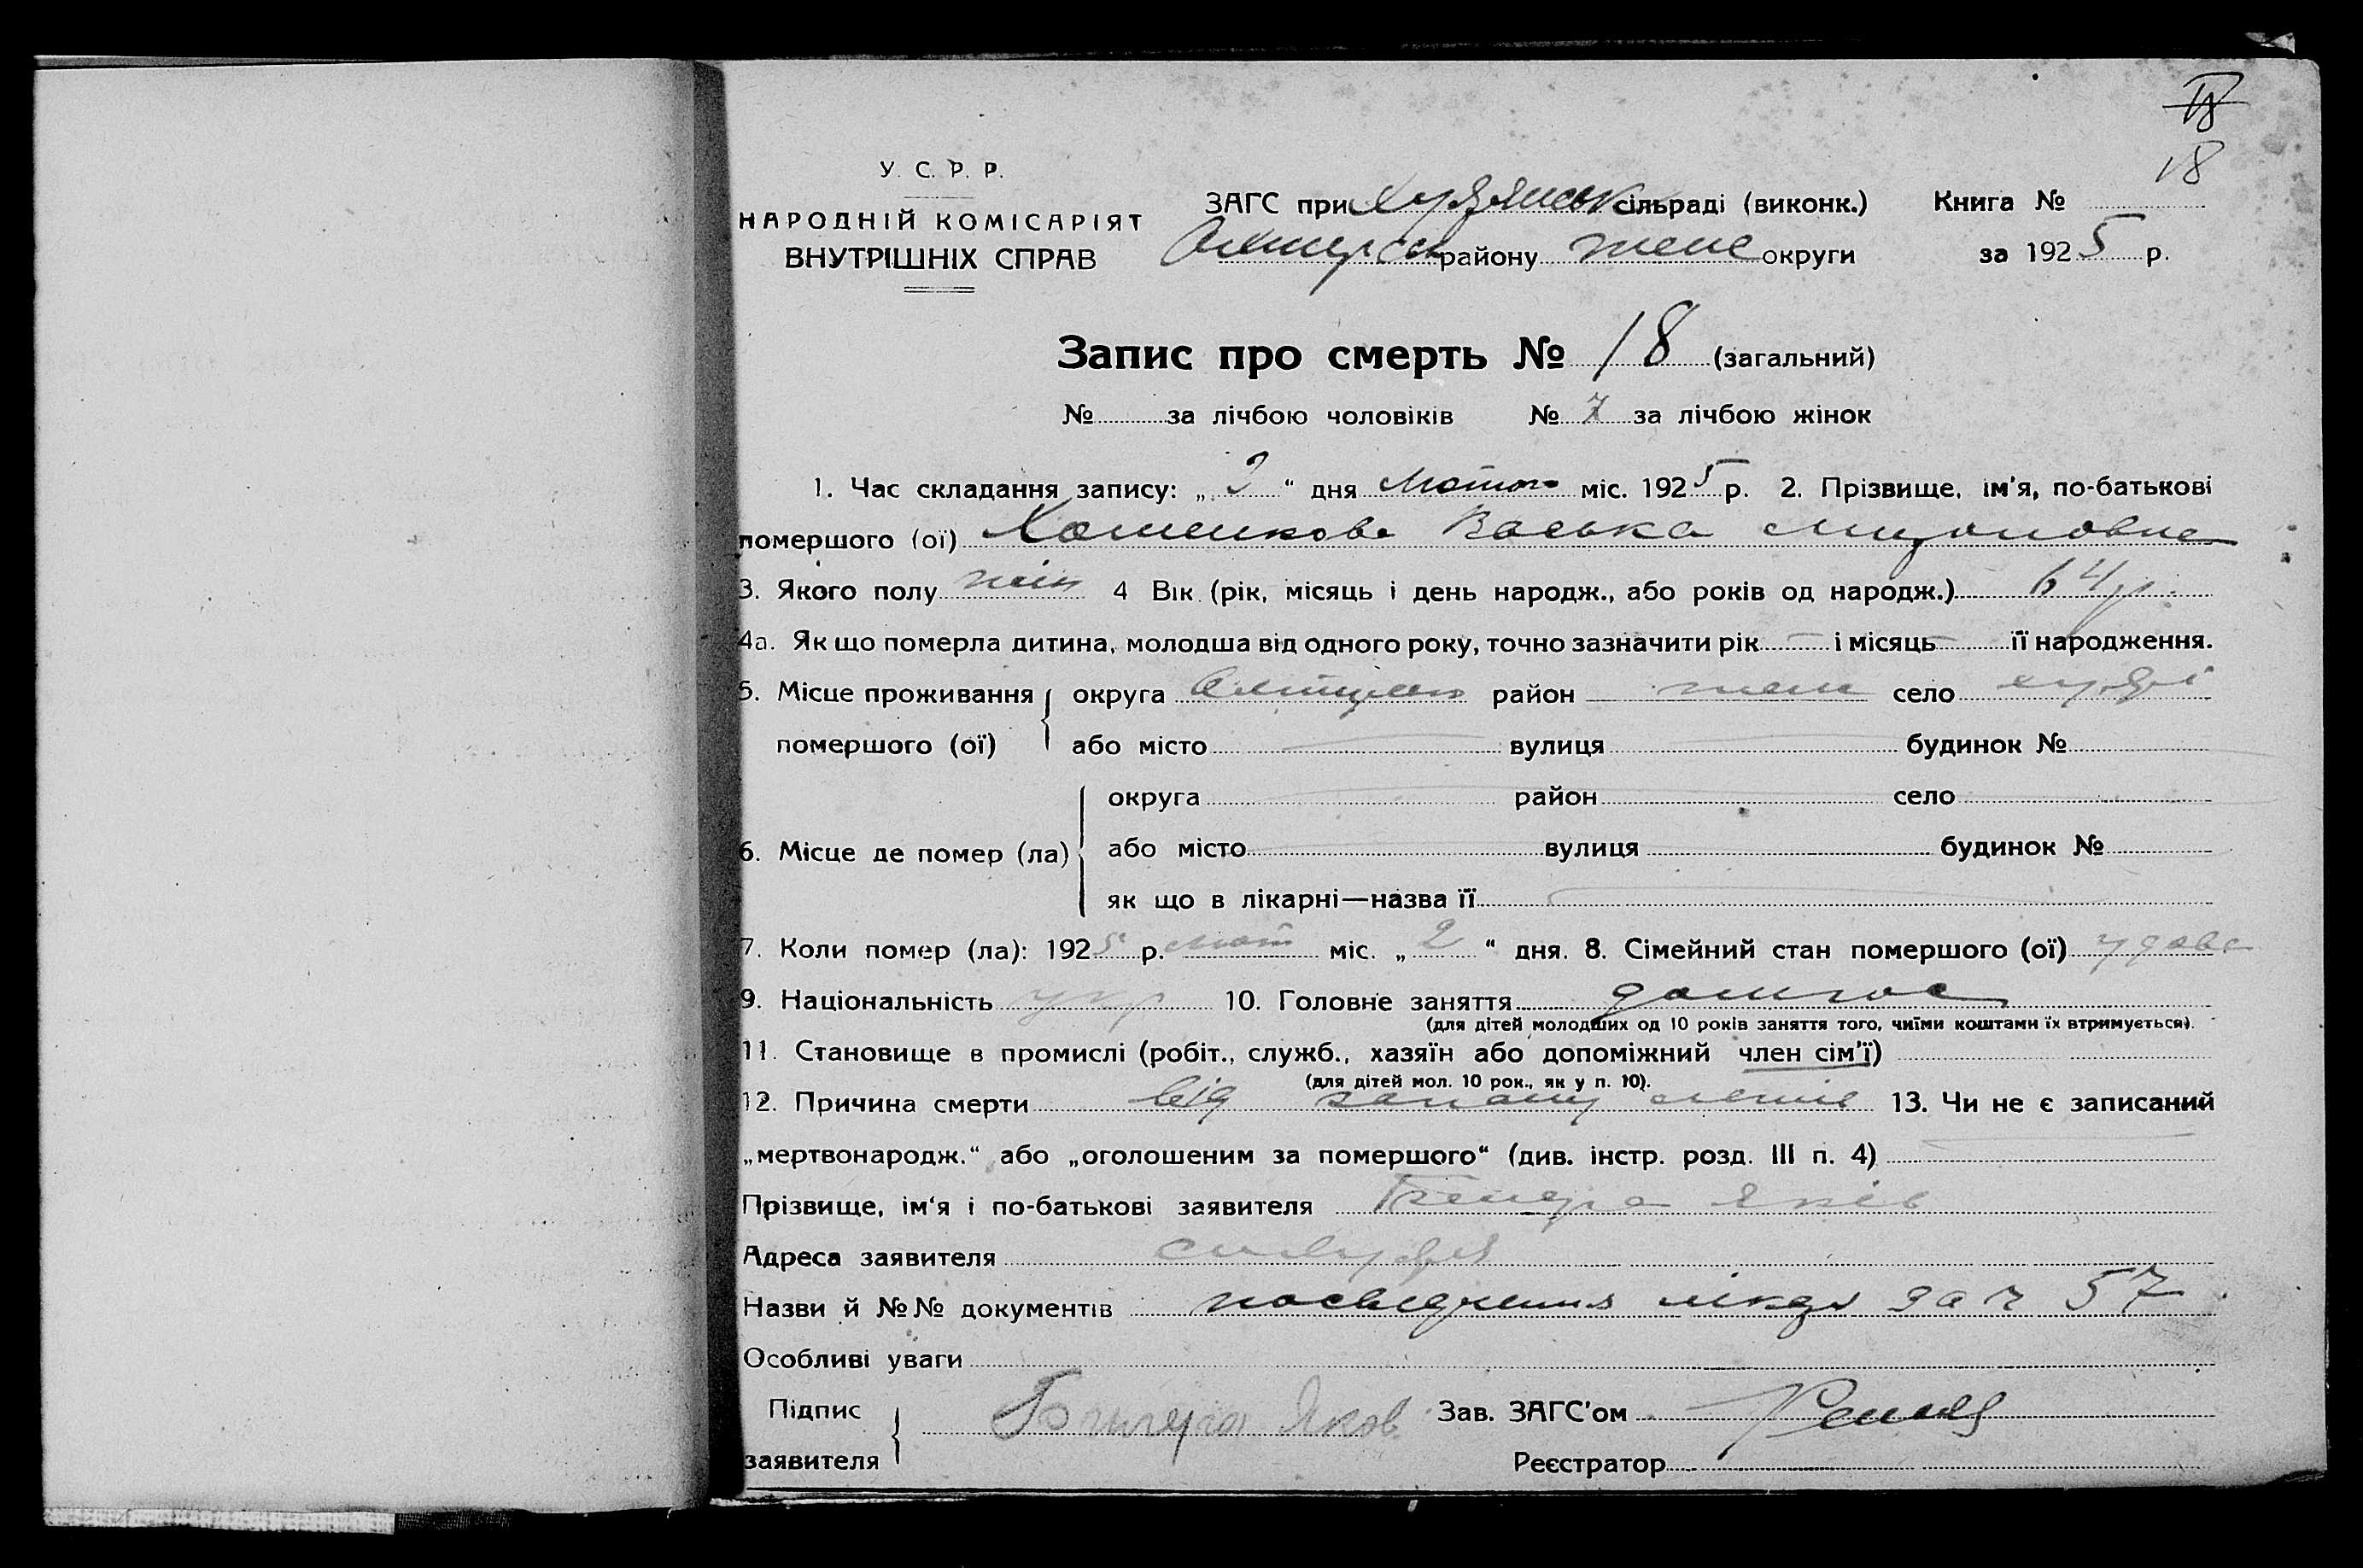 18
18
У. С. Р. Р.
НАРОДНІЙ КОМІСАРІЯТ
ВНУТРІШНІХ СПРАВ
ЗАГС при Худянськ сільраді (виконк.) Книга №
району теж округи за 1925 р.
Запис про смерть № 18 (загальний)
№ за лічбою чоловіків № 7 за лічбою жінок
1. Час складання запису: „ 3 “ дня Лютого міс. 1925 р. 2. Прізвище, ім'я, по-батькові
помершого (ої) Васька Мироновна
3. Якого полу жін 4 Вік (рік, місяць і день народж., або років од народж.) 64 р.
4а. Як що померла дитина, молодша від одного року, точно зазначити рік — і місяць — її народження.
5. Місце проживання округа район теж село худяки
помершого (ої) або місто вулиця будинок №
округа район село
6. Місце де помер (ла) або місто вулиця будинок №
як що в лікарні—назва її
7. Коли помер (ла): 1925 р. Лют міс. „ 2 “ дня. 8. Сімейний стан помершого (ої) удова
9. Національність укр 10. Головне заняття домгос
(для дітей молодших од 10 років заняття того, чиїми коштами їх втримується).
11. Становище в промислі (робіт., служб., хазяїн або допоміжний член сім'ї)
(для дітей мол. 10 рок., як у п. 10).
12. Причина смерти від запалу легнів 13. Чи не є записаний
„мертвонародж.“ або „оголошеним за помершого“ (див. інстр. розд. III п. 4)
Прізвище, ім'я і по-батькові заявителя Яків
Адреса заявителя
Назви й №№ документів посвідчення лікаря за ч 57
Особливі уваги
Підпис
заявителя Яков
Зав. ЗАГС'ом
Реєстратор